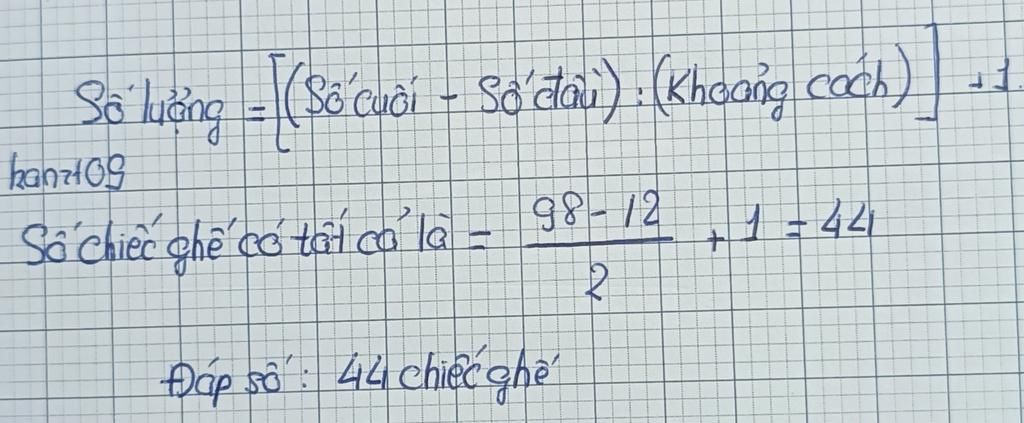 Số lượng = [(Số cuối - Số đầu) : (Khoảng cách)] + 1.
Số chiếc ghế có tất cả là = \frac{98 - 12}{2} + 1 = 44
Đáp số : 44 chiếc ghế